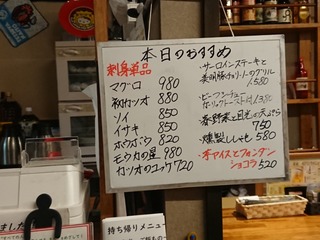 本日のおすすめ
刺身単品
マグロ 980
初カツオ 880
ソイ 850
イサキ 850
ホウボウ 820
モウカの星 980
カツオのユッケ 720
・サーロインステーキと
のグリル
1,580
・ビーフシチュー
ガーリックトースト付
・春野菜と目光の天ぷら
750
・燻製ししゃも 580
アイスとフォンダン
ショコラ 520
持ち帰りメニュー